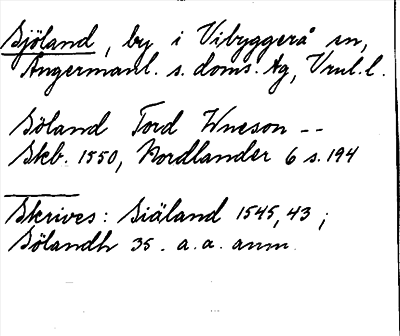 Sjöland, by i Vibyggerå sn,
Ångermanl. s. doms. Ag, Vnl. l.
Söland Tord Uneson --
Skb. 1550, Nordlander 6 s. 194
Skrives: Siäland 1545, 43;
Sölandh 35. a. a. anm.